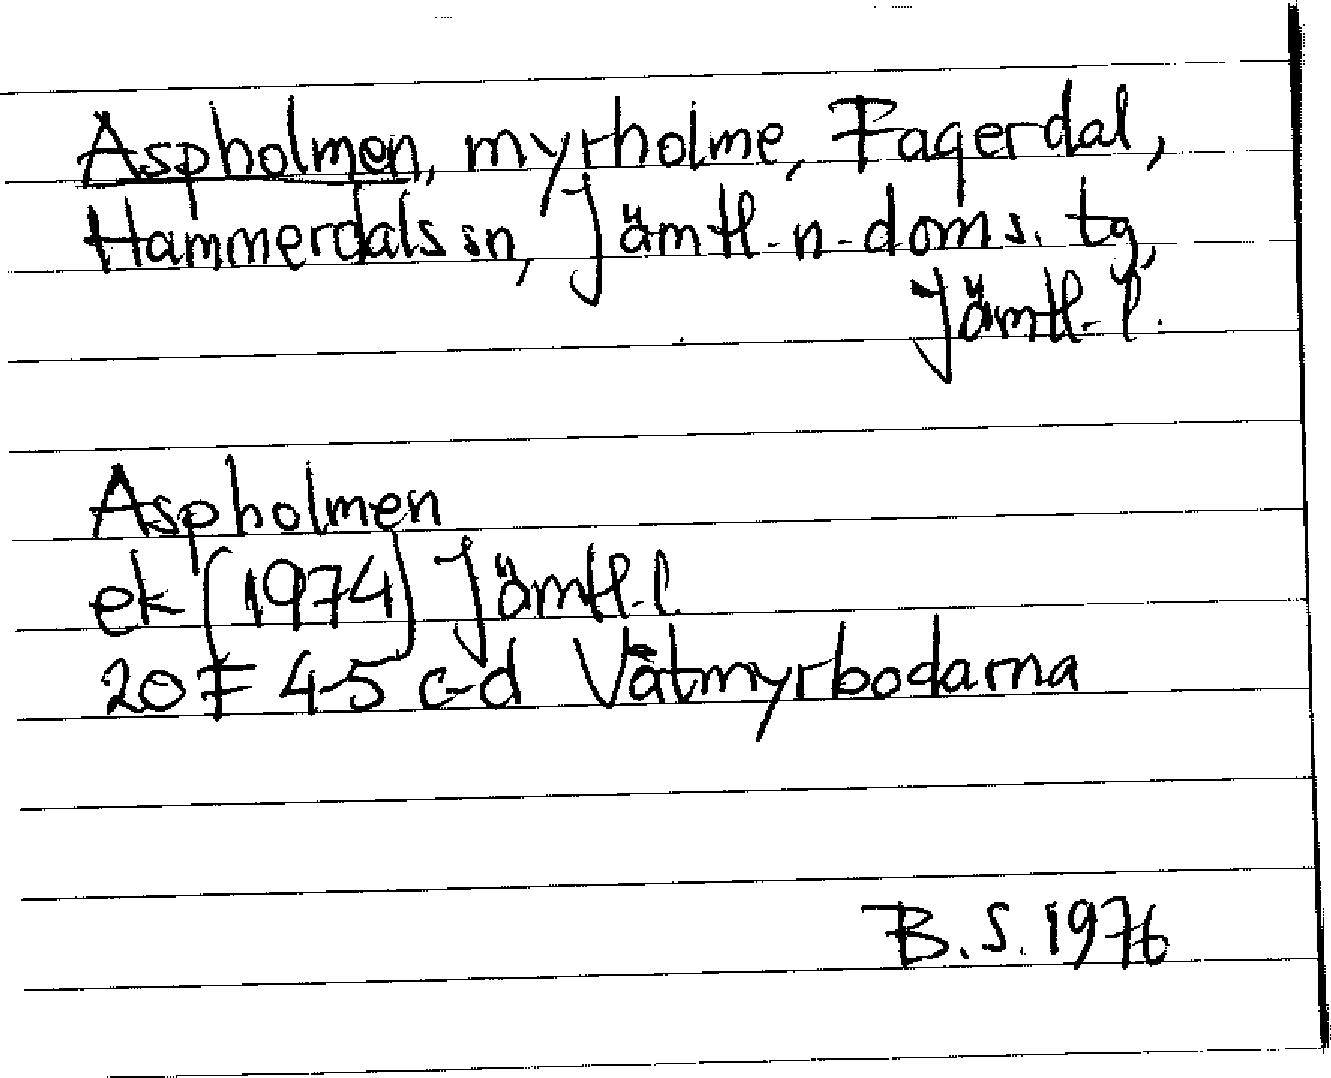 Aspholmen, myrholme, Fagerdal,
Hammerdals sn, Jämtl. n. doms. tg,
Jämtl. l.
Aspholmen
ek (1974) Jämtl. l
20 F 4-5 c-d Våtmyrbodarna
B.S. 1976